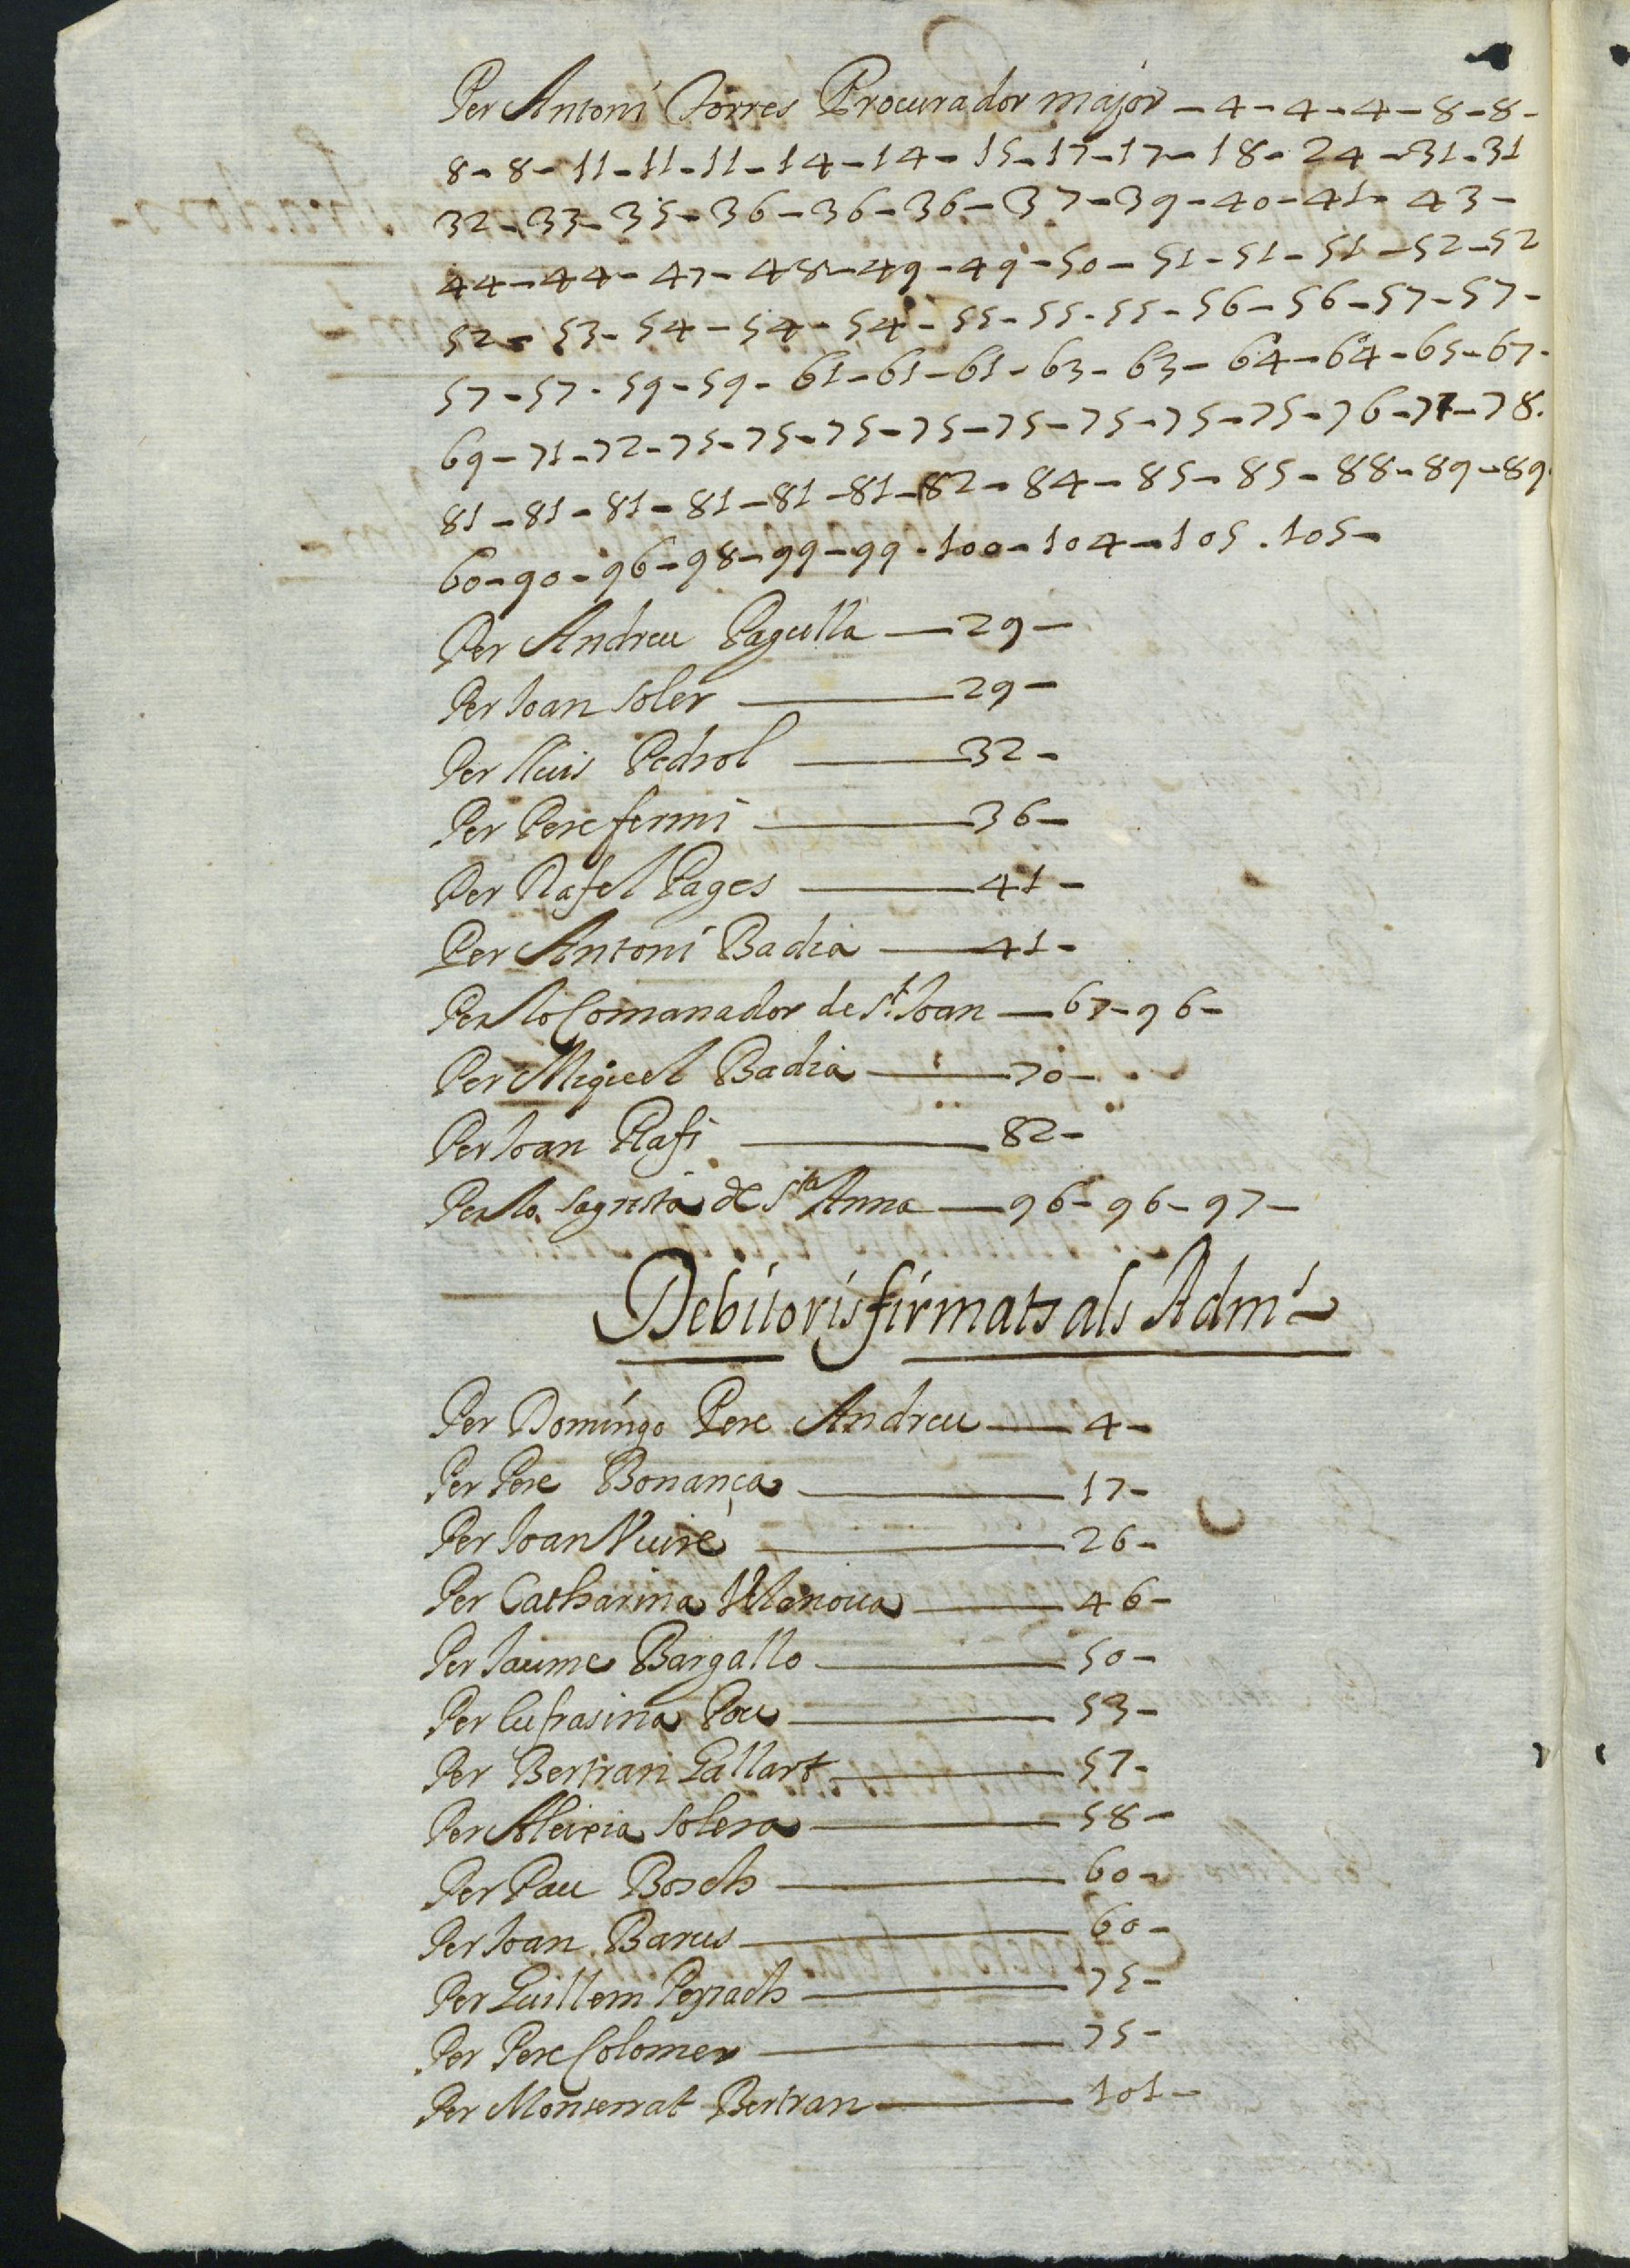 Per Antoni Torres Procurador major - 4 - 4 - 4 - 8 - 8 -
8 - 8 - 11 - 11 - 11 - 14 - 14 - 15 - 17 - 17 - 18 - 24 - 31 - 31
32 - 33 - 35 - 36 - 36 - 36 - 37 - 39 - 40 - 41 - 43 -
44 - 44 - 47 - 48 - 49 - 49 - 50 - 51 - 51 - 51 - 52 - 52
52 - 53 - 54 - 54 - 54 - 55 - 55 - 55 - 56 - 56 - 57 - 57 -
57 - 57 - 59 - 59 - 61 - 61 - 61 - 63 - 63 - 64 - 64 - 65 - 67 -
69 - 71 - 72 - 75 - 75 - 75 - 75 - 75 - 75 - 75 - 75 - 76 - 77 - 78.
81 - 81 - 81 - 81 - 81 - 81 - 82 - 84 - 85 - 85 - 88 - 89 - 89.
60 - 90 - 96 - 98 - 99 - 99 - 100 - 104 - 105 . 105 -
Per Andreu Pagulla — 29 -
Per Joan Soler — 29 -
Per Lluis Pedrol — 32 -
Per Pere fermi — 36 -
Per Rafel Pages — 41 -
Per Antoni Badia — 41 -
Per lo Comanador de St. Joan — 67 - 96 -
Per Miquel Badia — 70 -
Per Joan Rafi — 82 -
Per lo Sagristà de Sta Anna — 96 - 96 - 97 -
Debitoris firmats als Adm.s
Per Domingo Pere Andreu — 4 -
Per Pere Bonança — 17 -
Per Joan — 26 -
Per Catharina Vilanova — 46 -
Per Jaume Bargallo — 50 -
Per Eufrasina Pou — 53 -
Per Bertran Gallart — 57 -
Per Aleixia Solera — 58 -
Per Pau Bosch — 60 -
Per Joan Barus — 60 -
Per Guillem Peyrach — 75 -
Per Pere Colomer — 75 -
Per Monserrat Bertran — 101 -